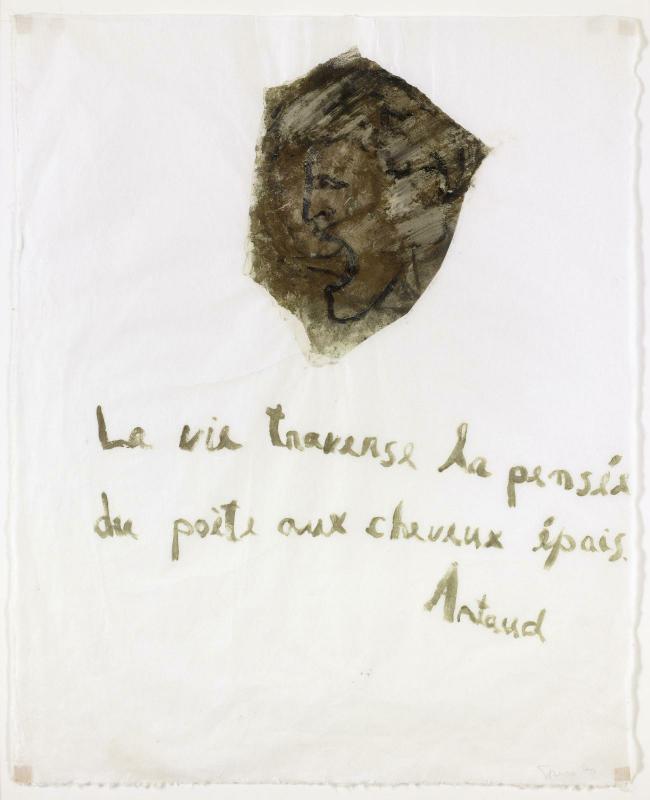 La vie traverse la pensée
du poète aux cheveux épais.
Artaud